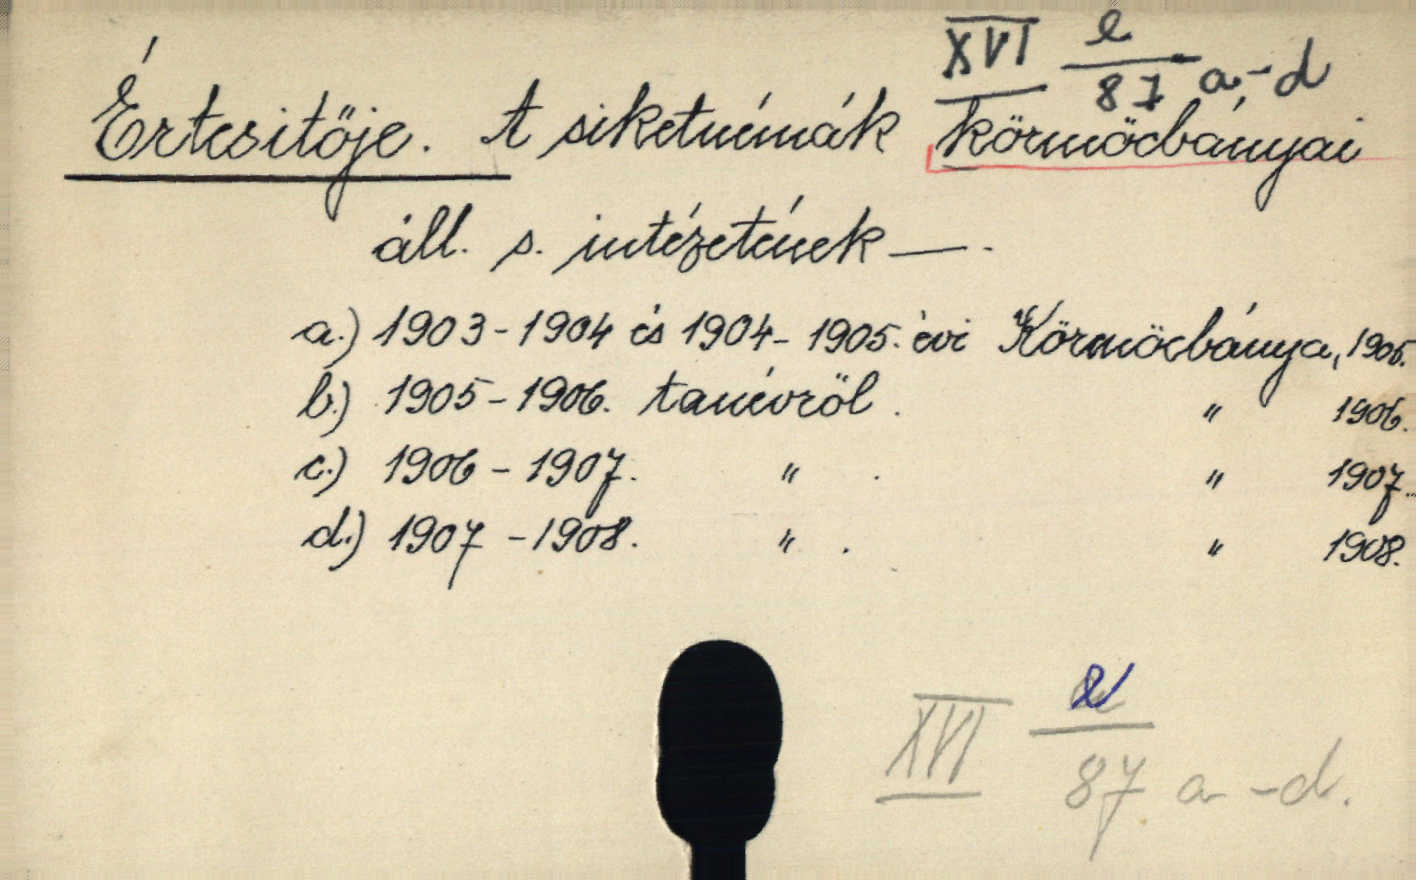 XVI e/87 a-d
Értesitője. A siketnémák körmöcbányai
áll. s. intézetének — .
a.) 1903-1904 és 1904-1905. évi Körmöcbánya, 1905.
b.) 1905-1906. tanévről. " 1906.
c.) 1906-1907. " . " 1907.
d.) 1907-1908. " . " 1908.
XVI e/87 a-d.